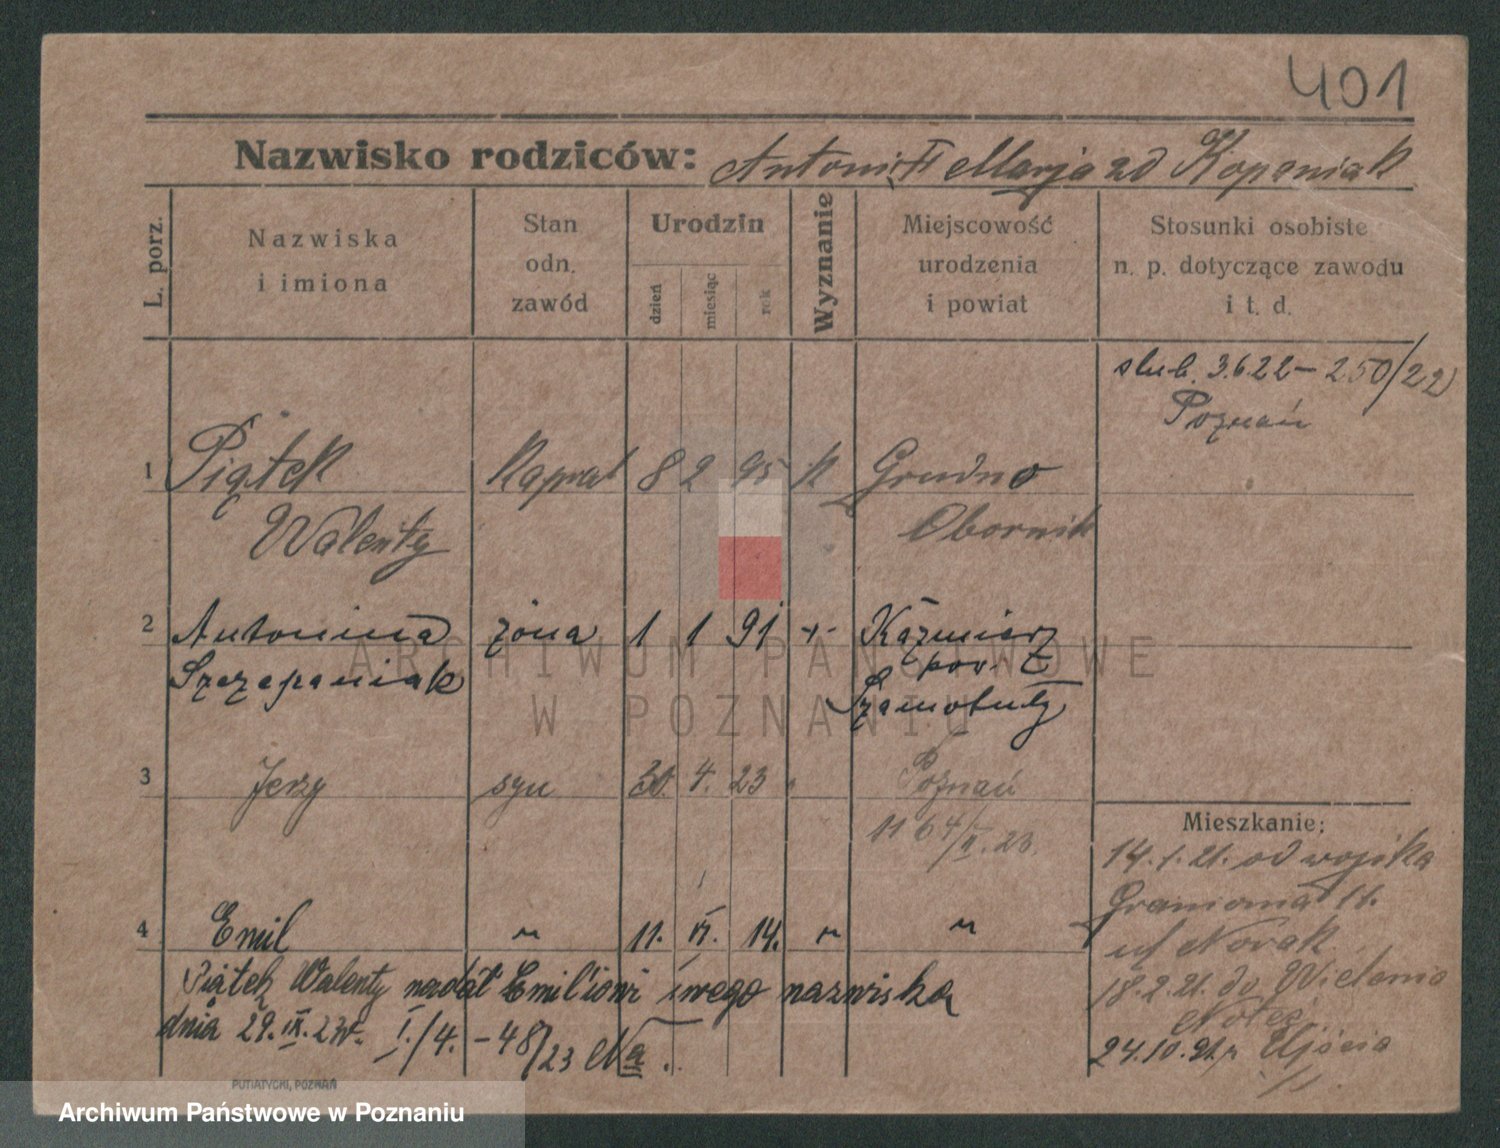 401
Nazwisko rodziców: Antoni i Marja zd Kopeniak
L. porz.
Nazwiska i imiona
Stan odn. zawód
Urodzin
dzień
miesiąc
rok
Wyznanie
Miejscowość urodzenia i powiat
Stosunki osobiste n. p. dotyczące zawodu i t. d.
slub. 3.6.22 – 250/22
Poznań
1 Piątek Kapral 8 2 95 k Grudno
Walenty Obornik
2 Antonina żona 1 1 91 Kaźmierz
Szczepaniak pow.
Szamotuły
3 Jerzy syn 30. 4. 23 Poznań
1164/II.23.
Mieszkanie:
14.1.21. od wojska
11.
4 Emil " 11. VI. 14. " "
ul Novak
Piątek Walenty nadał Emil'iowi swego nazwiska
18.2.21. do Wielenia
Noteć
dnia 29.IX.23r. I./4. – 48/23
24.10.21 z Ujścia
PUTIATYCKI, POZNAŃ
ARCHIWUM PAŃSTWOWE
W POZNANIU
Archiwum Państwowe w Poznaniu